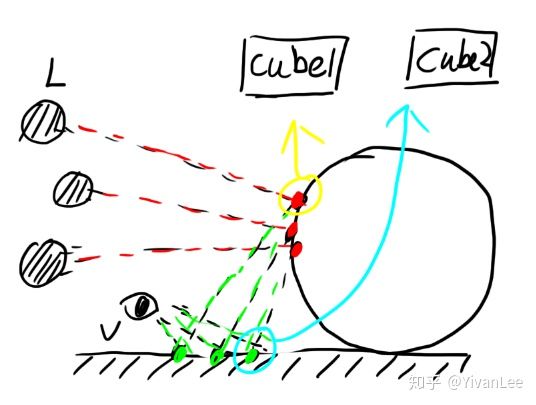 cube1
Cube2
L
V
知乎 @YivanLee